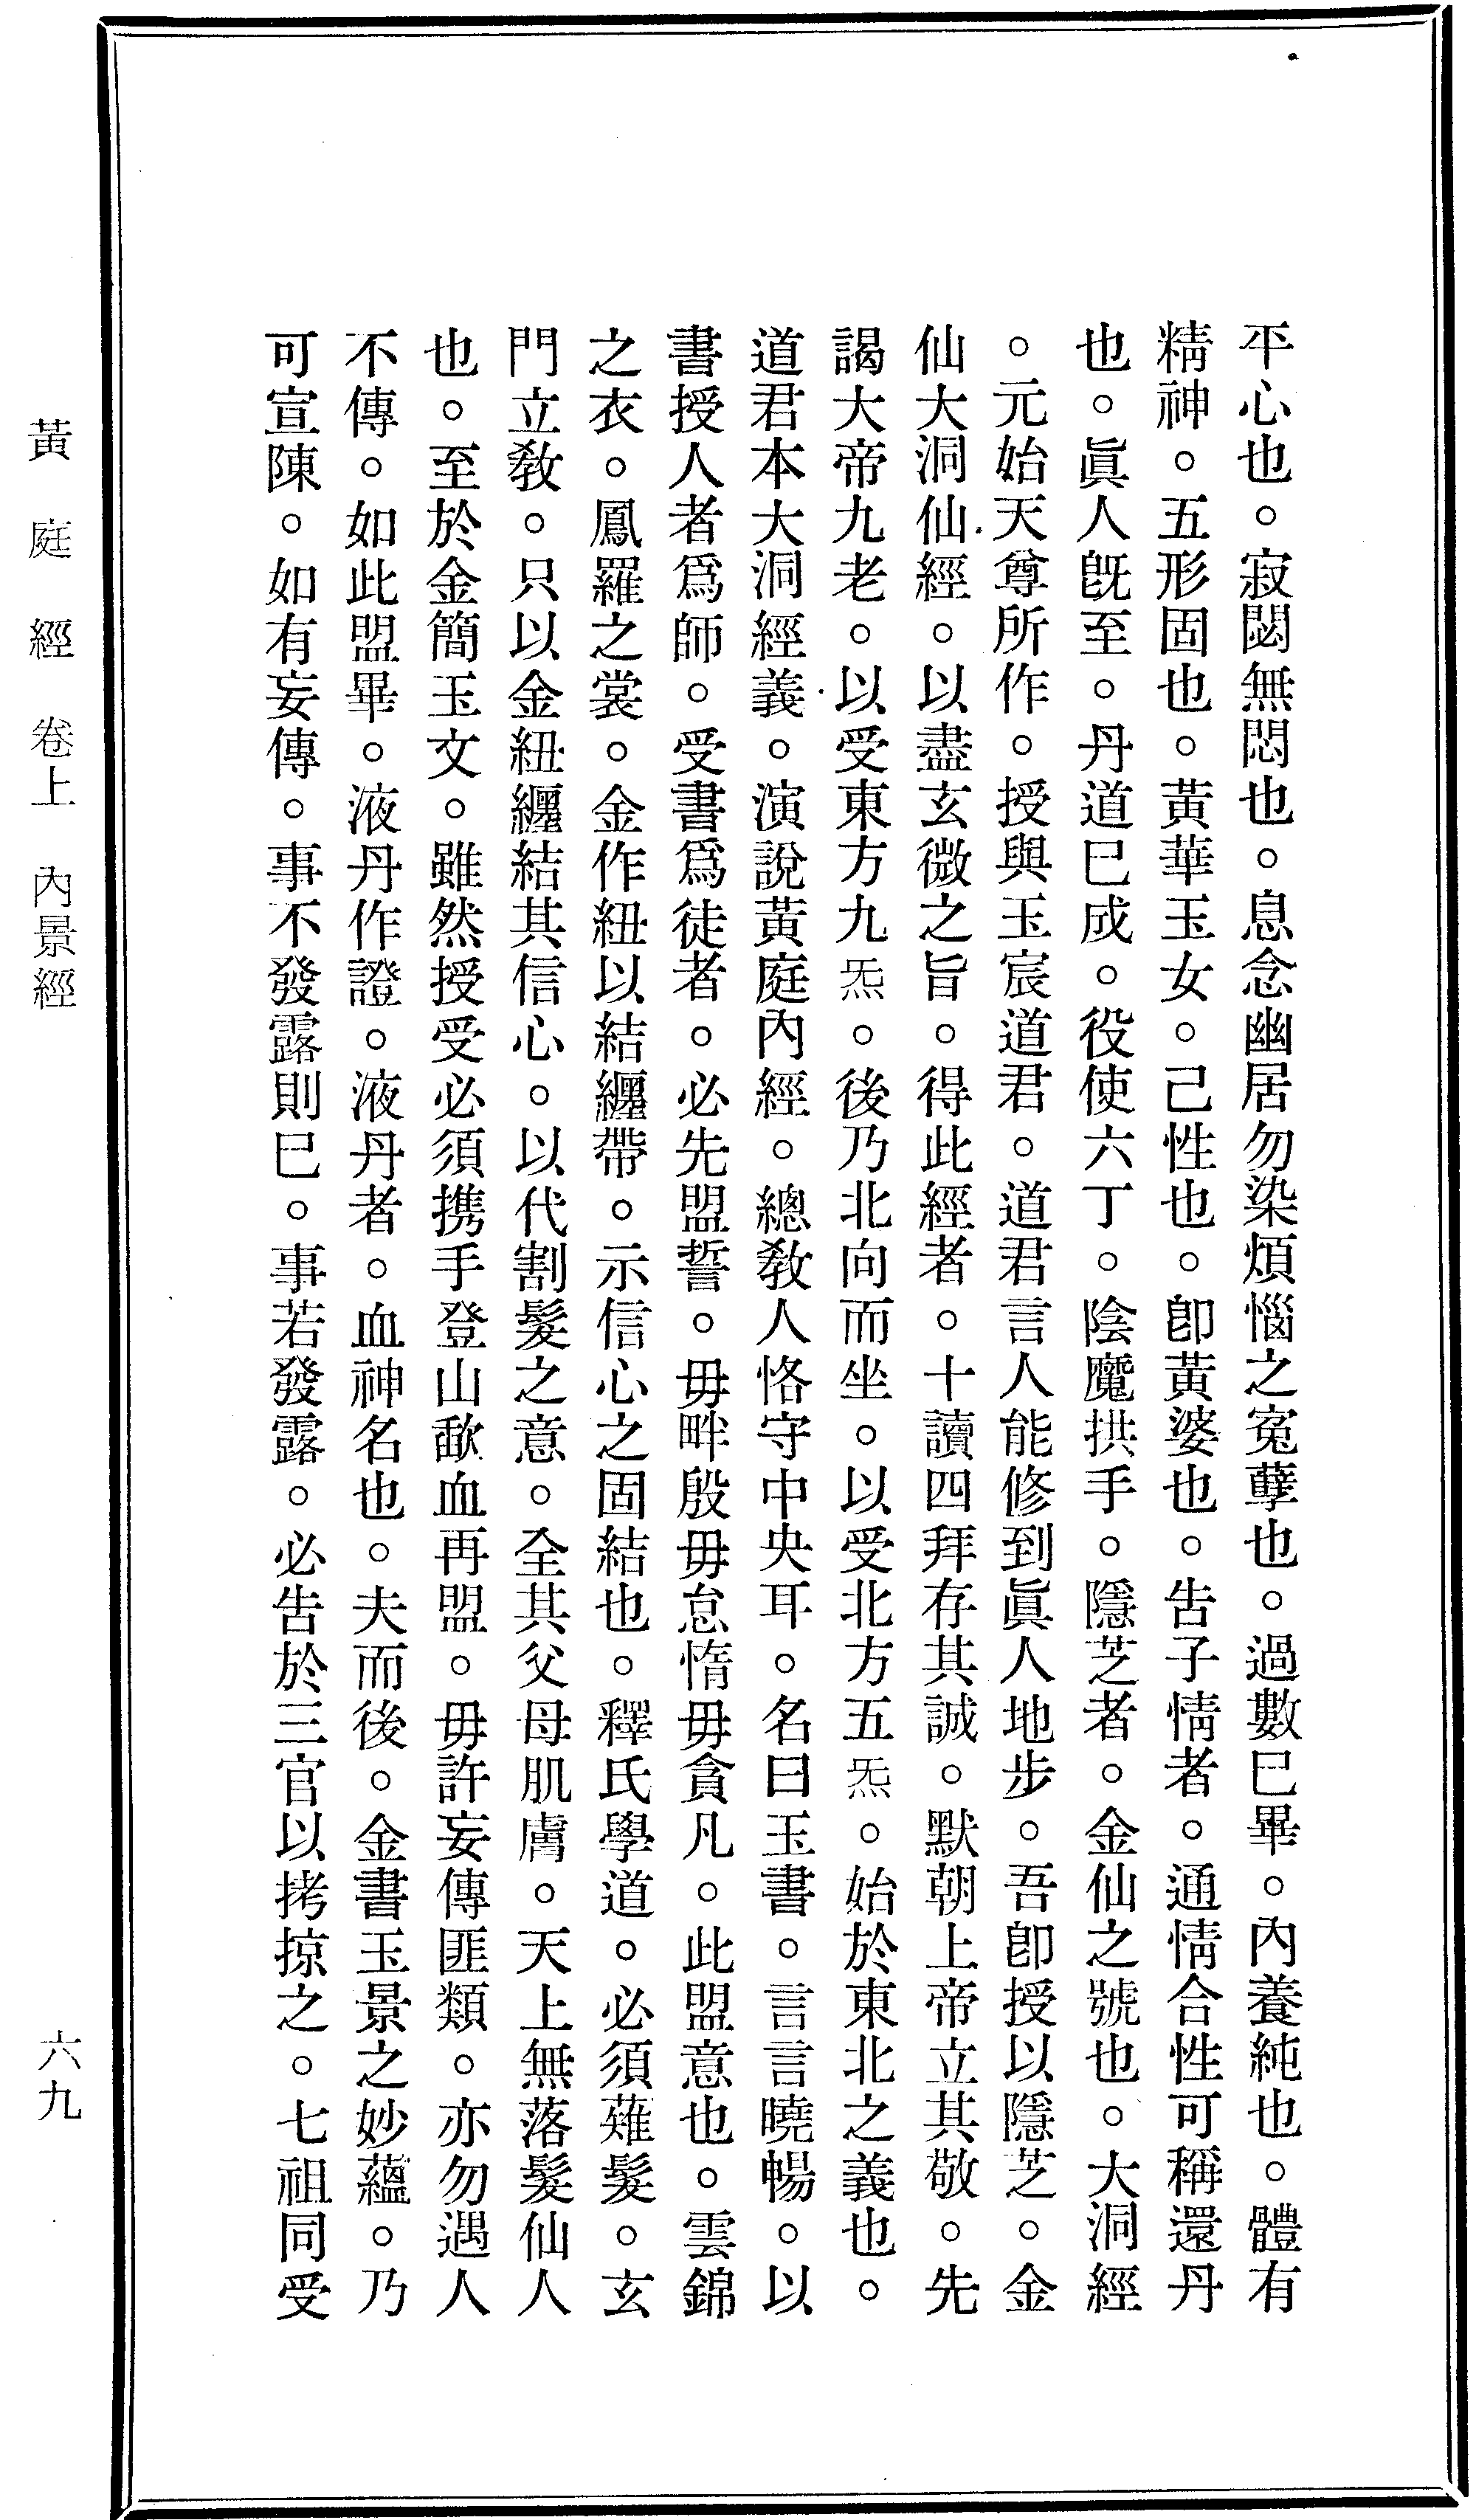 平心也。寂閟無悶也。息念幽居勿染煩惱之寃孽也。過數巳畢。內養純也。體有
精神。五形固也。黃華玉女。己性也。卽黃婆也。告子情者。通情合性可稱還丹
也。眞人旣至。丹道巳成。役使六丁。陰魔拱手。隱芝者。金仙之號也。大洞經
。元始天尊所作。授與玉宸道君。道君言人能修到眞人地步。吾卽授以隱芝。金
仙大洞仙經。以盡玄微之旨。得此經者。十讀四拜存其誠。默朝上帝立其敬。先
謁大帝九老。以受東方九炁。後乃北向而坐。以受北方五炁。始於東北之義也。
道君本大洞經義。演說黃庭內經。總敎人恪守中央耳。名曰玉書。言言曉暢。以
書授人者爲師。受書爲徒者。必先盟誓。毋畔殷毋怠惰毋貪凡。此盟意也。雲錦
之衣。鳳羅之裳。金作紐以結纏帶。示信心之固結也。釋氏學道。必須薙髮。玄
門立敎。只以金紐纏結其信心。以代割髮之意。全其父母肌膚。天上無落髮仙人
也。至於金簡玉文。雖然授受必須携手登山歃血再盟。毋許妄傳匪類。亦勿遇人
不傳。如此盟畢。液丹作證。液丹者。血神名也。夫而後。金書玉景之妙蘊。乃
可宣陳。如有妄傳。事不發露則巳。事若發露。必告於三官以拷掠之。七祖同受
黃庭經 卷上 內景經 六九